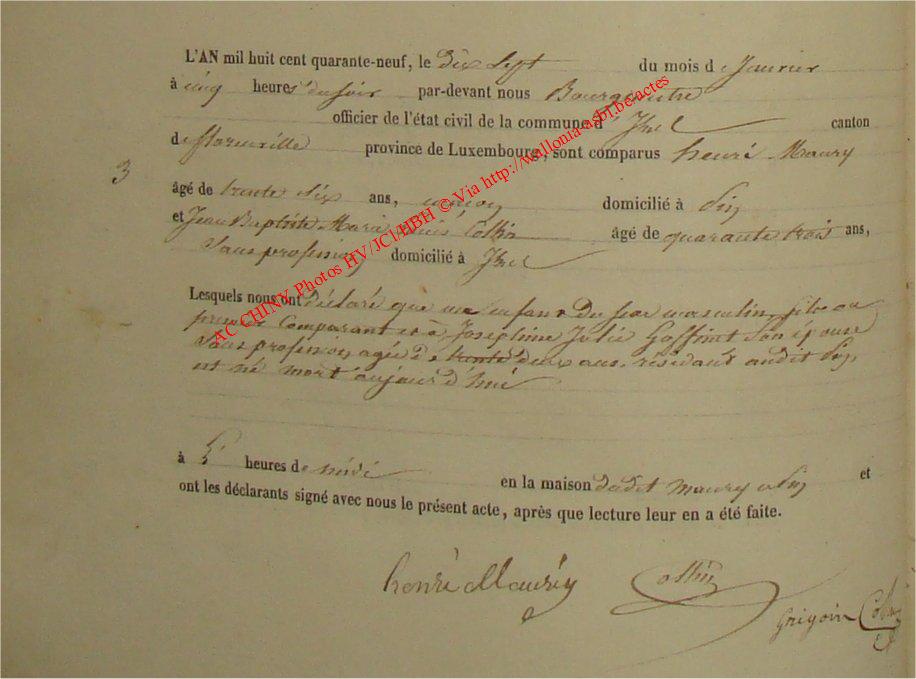 L'AN mil huit cent quarante-neuf, le dix Sept du mois de Janvier
à cinq heures du soir par-devant nous Bourgmestre
officier de l'état civil de la commune d' Izel canton
de florenville province de Luxembourg, sont comparus henri Maury
3
âgé de trente Six ans, domicilié à Pin
et Jean Baptiste Marie Collin âgé de quarante trois ans,
Sans profession domicilié à Izel
Lesquels nous ont déclaré que un enfant du sexe masculin, fils au
premier Comparant et à Joséphine Julie Goffinet Son épouse
Sans profession, agée de trente deux ans, résidant audit Pin,
est né mort aujourd'hui
à 5 heures de midi en la maison dudit Maury à Pin et
ont les déclarants signé avec nous le présent acte, après que lecture leur en a été faite.
henri Maury Collin
Grigoir
AC CHINY Photos HV/JCl/HBH © Via http://wallonia-asbl.be/actes